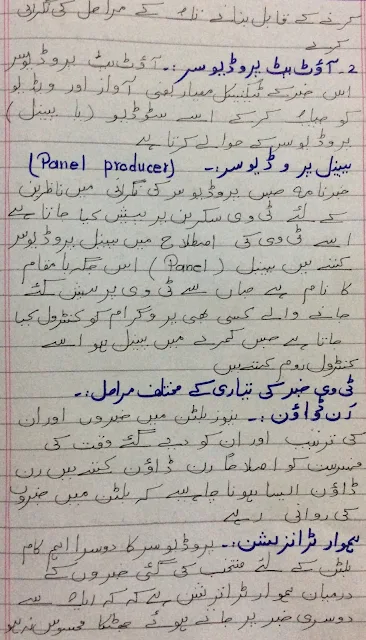 کرنے کے قابل بنانے تک کے مراحل کی نگرانی
کرتے
2۔ آؤٹ پٹ پروڈیوسر:۔ آؤٹ پٹ پروڈیوسر
اس خبر کے ٹیکنیکل معیار یعنی آواز اور ویڈیو
کو چیک کرکے اسے سٹوڈیو (یا پینل)
پروڈیوسر کے حوالے کرتا ہے
پینل پروڈیوسر:۔ (Panel producer)
خبرنامہ جس پروڈیوسر کی نگرانی میں ناظرین
کے لئے ٹی وی سکرین پر پیش کیا جاتا ہے
اسے ٹی وی کی اصطلاح میں پینل پروڈیوسر
کہتے ہیں پینل (Panel) اس جگہ یا مقام
کا نام ہے جہاں سے ٹی وی پر پیش کئے
جانے والے کسی بھی پروگرام کو کنٹرول کیا
جاتا ہے جس کمرے میں پینل ہو اسے
کنٹرول روم کہتے ہیں
ٹی وی خبر کی تیاری کے مختلف مراحل:۔
رن ڈاؤن:۔ نیوز بلٹن میں خبروں اور ان
کی ترتیب اور ان کو دیے گئے وقت کی
فہرست کو اصلاحاً رن ڈاؤن کہتے ہیں رن
ڈاؤن ایسا ہونا چاہیے کہ بلٹن میں خبروں
کی روانی رہے
ہموار ٹرانزیشن:۔ پروڈیوسر کا دوسرا اہم کام
بلٹن کے لئے منتخب کی گئی خبروں کے
درمیان ہموار ٹرانزیشن ہے کہ کہ ایک سے
دوسری خبر پر جاتے ہوئے جھٹکا محسوس نہ ہو